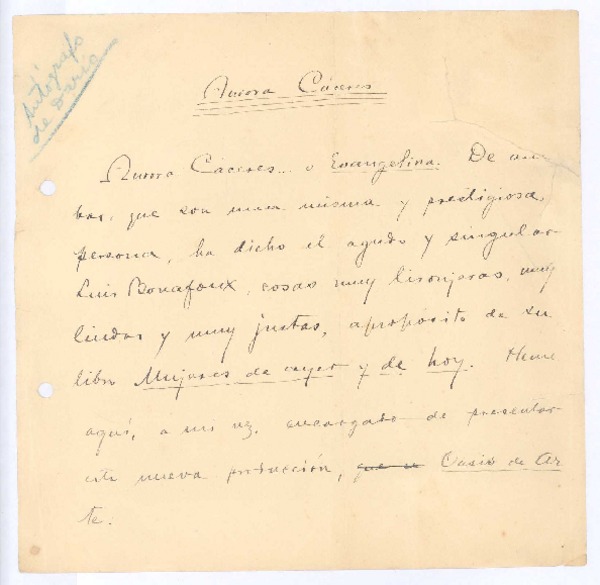 Autógrafo
de Darío
Aurora Cáceres
Aurora Cáceres... o Evangelina. De am-
bas, que son una misma y prestigiosa
persona, ha dicho el agudo y singular
Luis Bonafoux, cosas muy lisonjeras, muy
lindas y muy justas, apropósito de su
libro Mujeres de ayer y de hoy. Heme
aquí, a mi vez, encargado de presentar
esta nueva producción, Oasis de Ar
te.